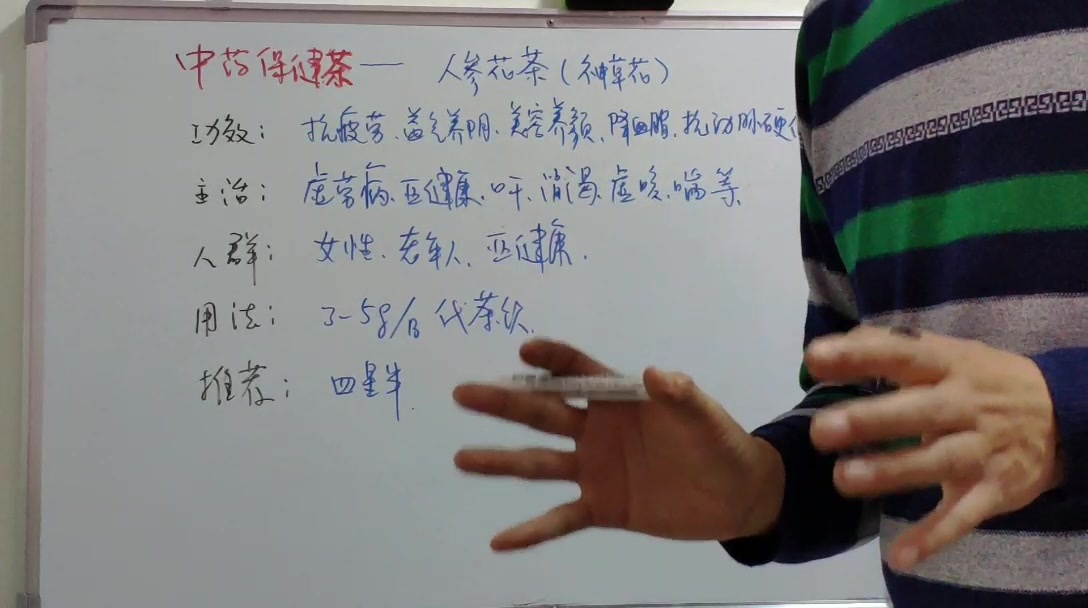 中药保健茶——人参花茶(神草花)
功效: 抗疲劳、益气养阴、美容养颜、降血脂、抗动脉硬
主治: 虚劳病、亚健康、吁、消渴、虚咳、喘等、
人群: 女性、老年人、亚健康.
用法: 3-5g/日 代茶饮.
推荐: 四星半.